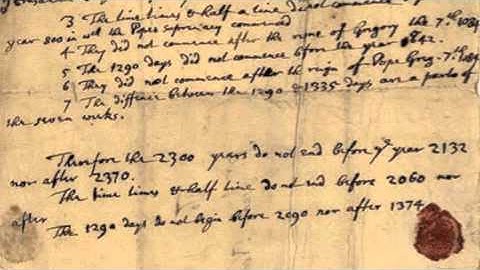 3 The time times & half a time did not commence
year 800 in wch the Popes supremacy commenced
4 They did not commence after the reigne of Gregory the 7th 1084
5 The 1290 days did not commence before the year 842.
6 They did not commence after the reign of Pope Greg. 7th 1084
7 The difference between the 1290 & 1335 days are a parts of
the seven weeks.
Therefore the 2300 years do not end before ye year 2132
nor after 2370.
The time times & half time do not end before 2060 nor
after
The 1290 days do not begin before 2090 nor after 1374